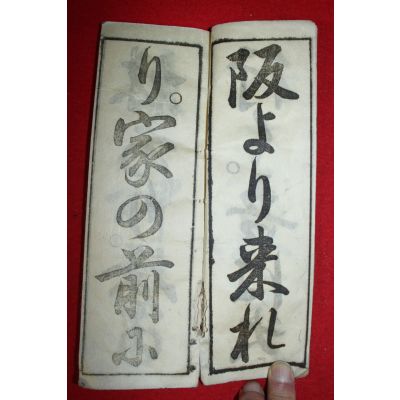 阪より来れ
り○家の前に